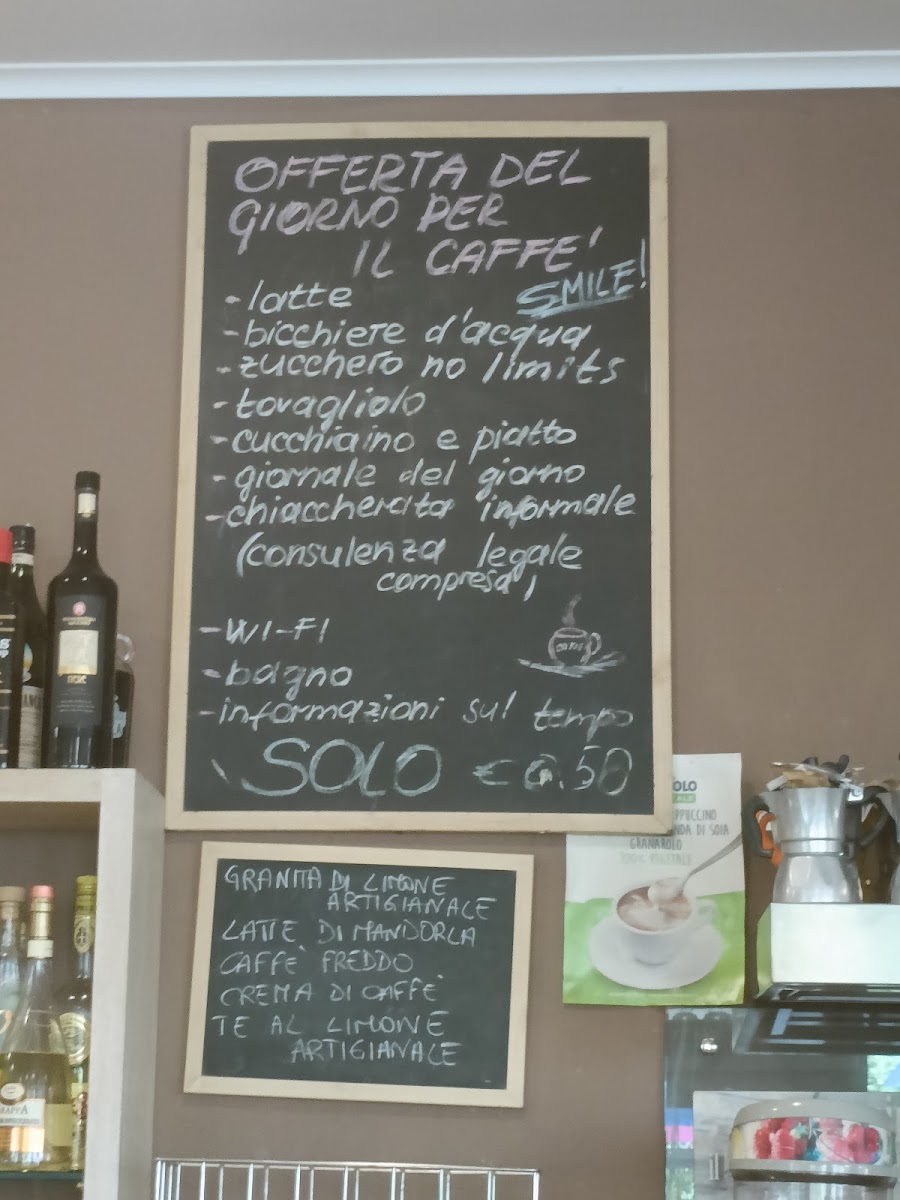 OFFERTA DEL
GIORNO PER
IL CAFFE'
SMILE!
- latte
- bicchiere d'acqua
- zucchero no limits
- tovagliolo
- cucchiaino e piatto
- giornale del giorno
- chiaccherata informale
(consulenza legale
compresa)
- WI-FI
- bagno
- informazioni sul tempo
SOLO € 0.50
GRANITA DI LIMONE
ARTIGIANALE
LATTE DI MANDORLA
CAFFÈ FREDDO
CREMA DI CAFFÈ
TE AL LIMONE
ARTIGIANALE
OLO
PPUCCINO
NDA DI SOIA
GRANAROLO
100% VEGETALE